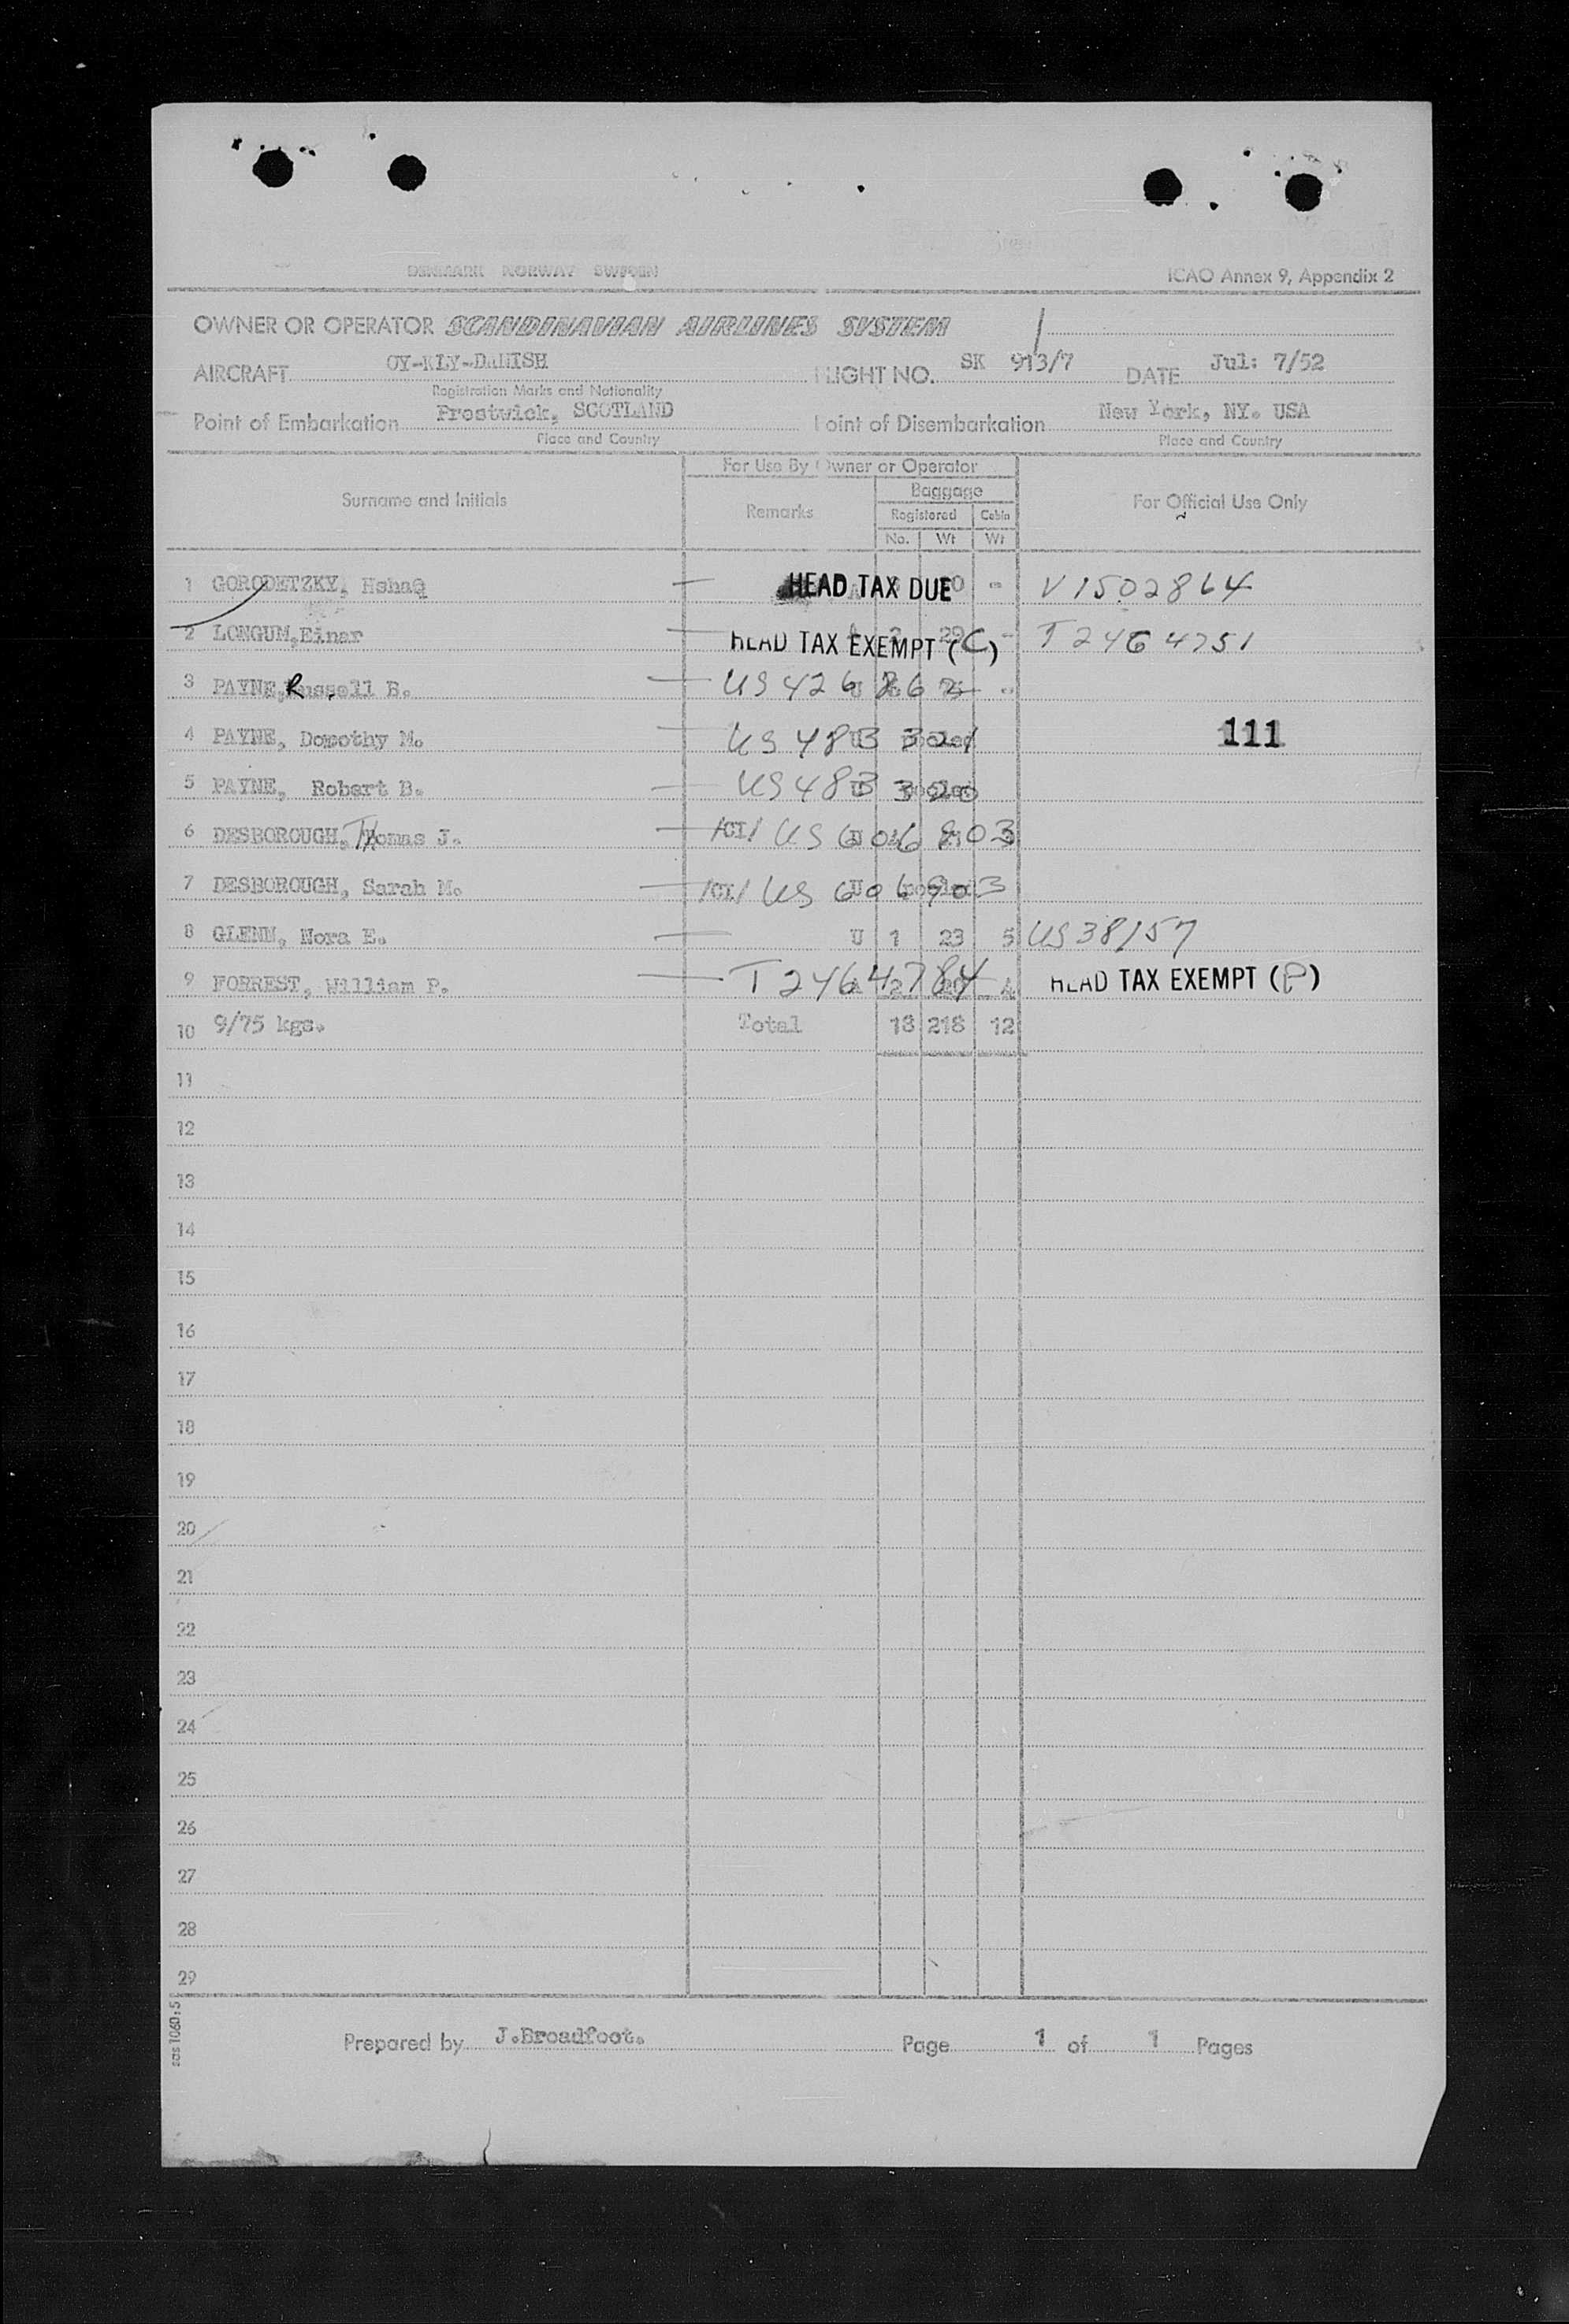 DENMARK NORWAY SWEDEN
ICAO Annex 9, Appendix 2
OWNER OR OPERATOR SCANDINAVIAN AIRLINES SYSTEM
AIRCRAFT OY-KLY-DANISH FLIGHT NO. SK 913/7 DATE Jul: 7/52
Registration Marks and Nationality
Point of Embarkation Prestwick, SCOTLAND Point of Disembarkation New York, NY. USA
Place and Country Place and Country
For Use By Owner or Operator
Surname and Initials Remarks Baggage For Official Use Only
Registered Cabin
No. Wt Wt
1 GORODETZKY, HEAD TAX DUE V1502864
2 LONGUM,Einar HEAD TAX EXEMPT (C) T2464751
3 PAYNE, Russell B. US 426862
4 PAYNE, Dorothy M. US 483321 111
5 PAYNE, Robert B. US 483320
6 DESBOROUGH, Thomas J. /CI/ US 606903
7 DESBOROUGH, Sarah M. /CI/ US 606903
8 GLENN, Nora E. U 1 23 5 US38157
9 FORREST, William P. T2464784 HEAD TAX EXEMPT (P)
10 9/75 kgs. Total 18 218 12
11
12
13
14
15
16
17
18
19
20
21
22
23
24
25
26
27
28
29
sas 1060:5
Prepared by J.Broadfoot. Page 1 of 1 Pages